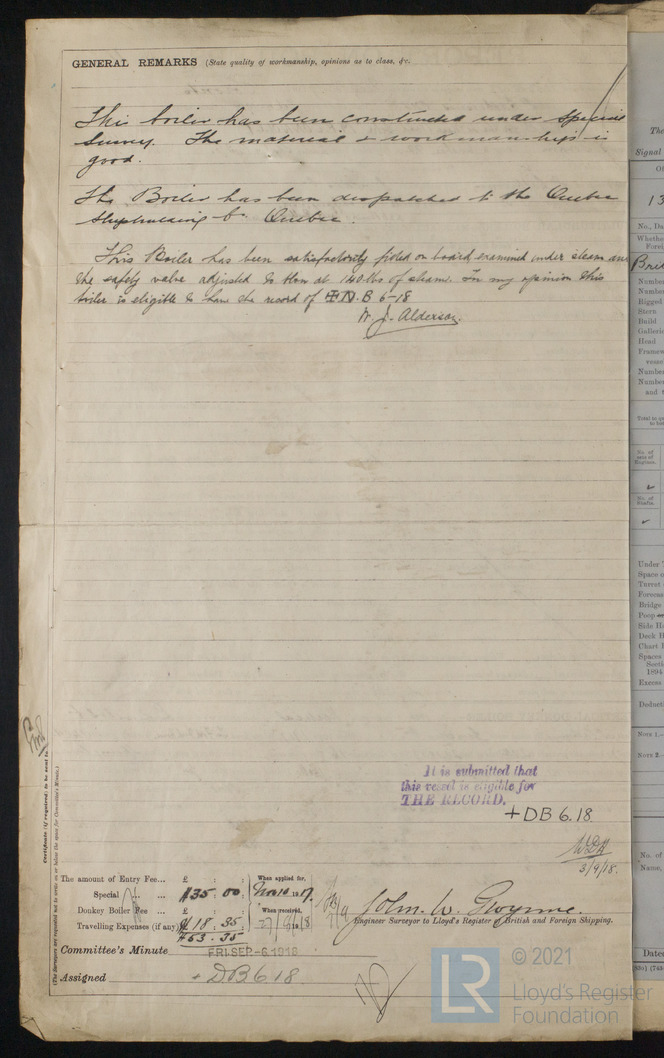 GENERAL REMARKS (State quality of workmanship, opinions as to class, &c.
This boiler has been constructed under Special
Survey. The material & workmanship is
good.
The Boiler has been despatched to the Quebec
Shipbuilding Co Quebec.
This Boiler has been satisfactorily fitted on board examined under steam and
the safety valve adjusted to blow at 140 lbs of steam. In my opinion this
boiler is eligible to have the record of D.B 6-18
W. J. Alderson.
It is submitted that
this vessel is eligible for
THE RECORD.
+DB 6.18
3/9/18.
The amount of Entry Fee... £ : :
Special ... £35 . 00
When applied for,
Nov 10 1917
Donkey Boiler Fee ... £ : :
Travelling Expenses (if any) £ 18 . 35
$53.35
When received,
John W. Gwynne
Engineer Surveyor to Lloyd's Register of British and Foreign Shipping.
Committee's Minute FRI. SEP-6 1918
Assigned + DB 6 18
Certificate (if required) to be sent to
(The Surveyors are requested not to write on or below the space for Committee's Minute.)
LR
© 2021
Lloyd's Register
Foundation